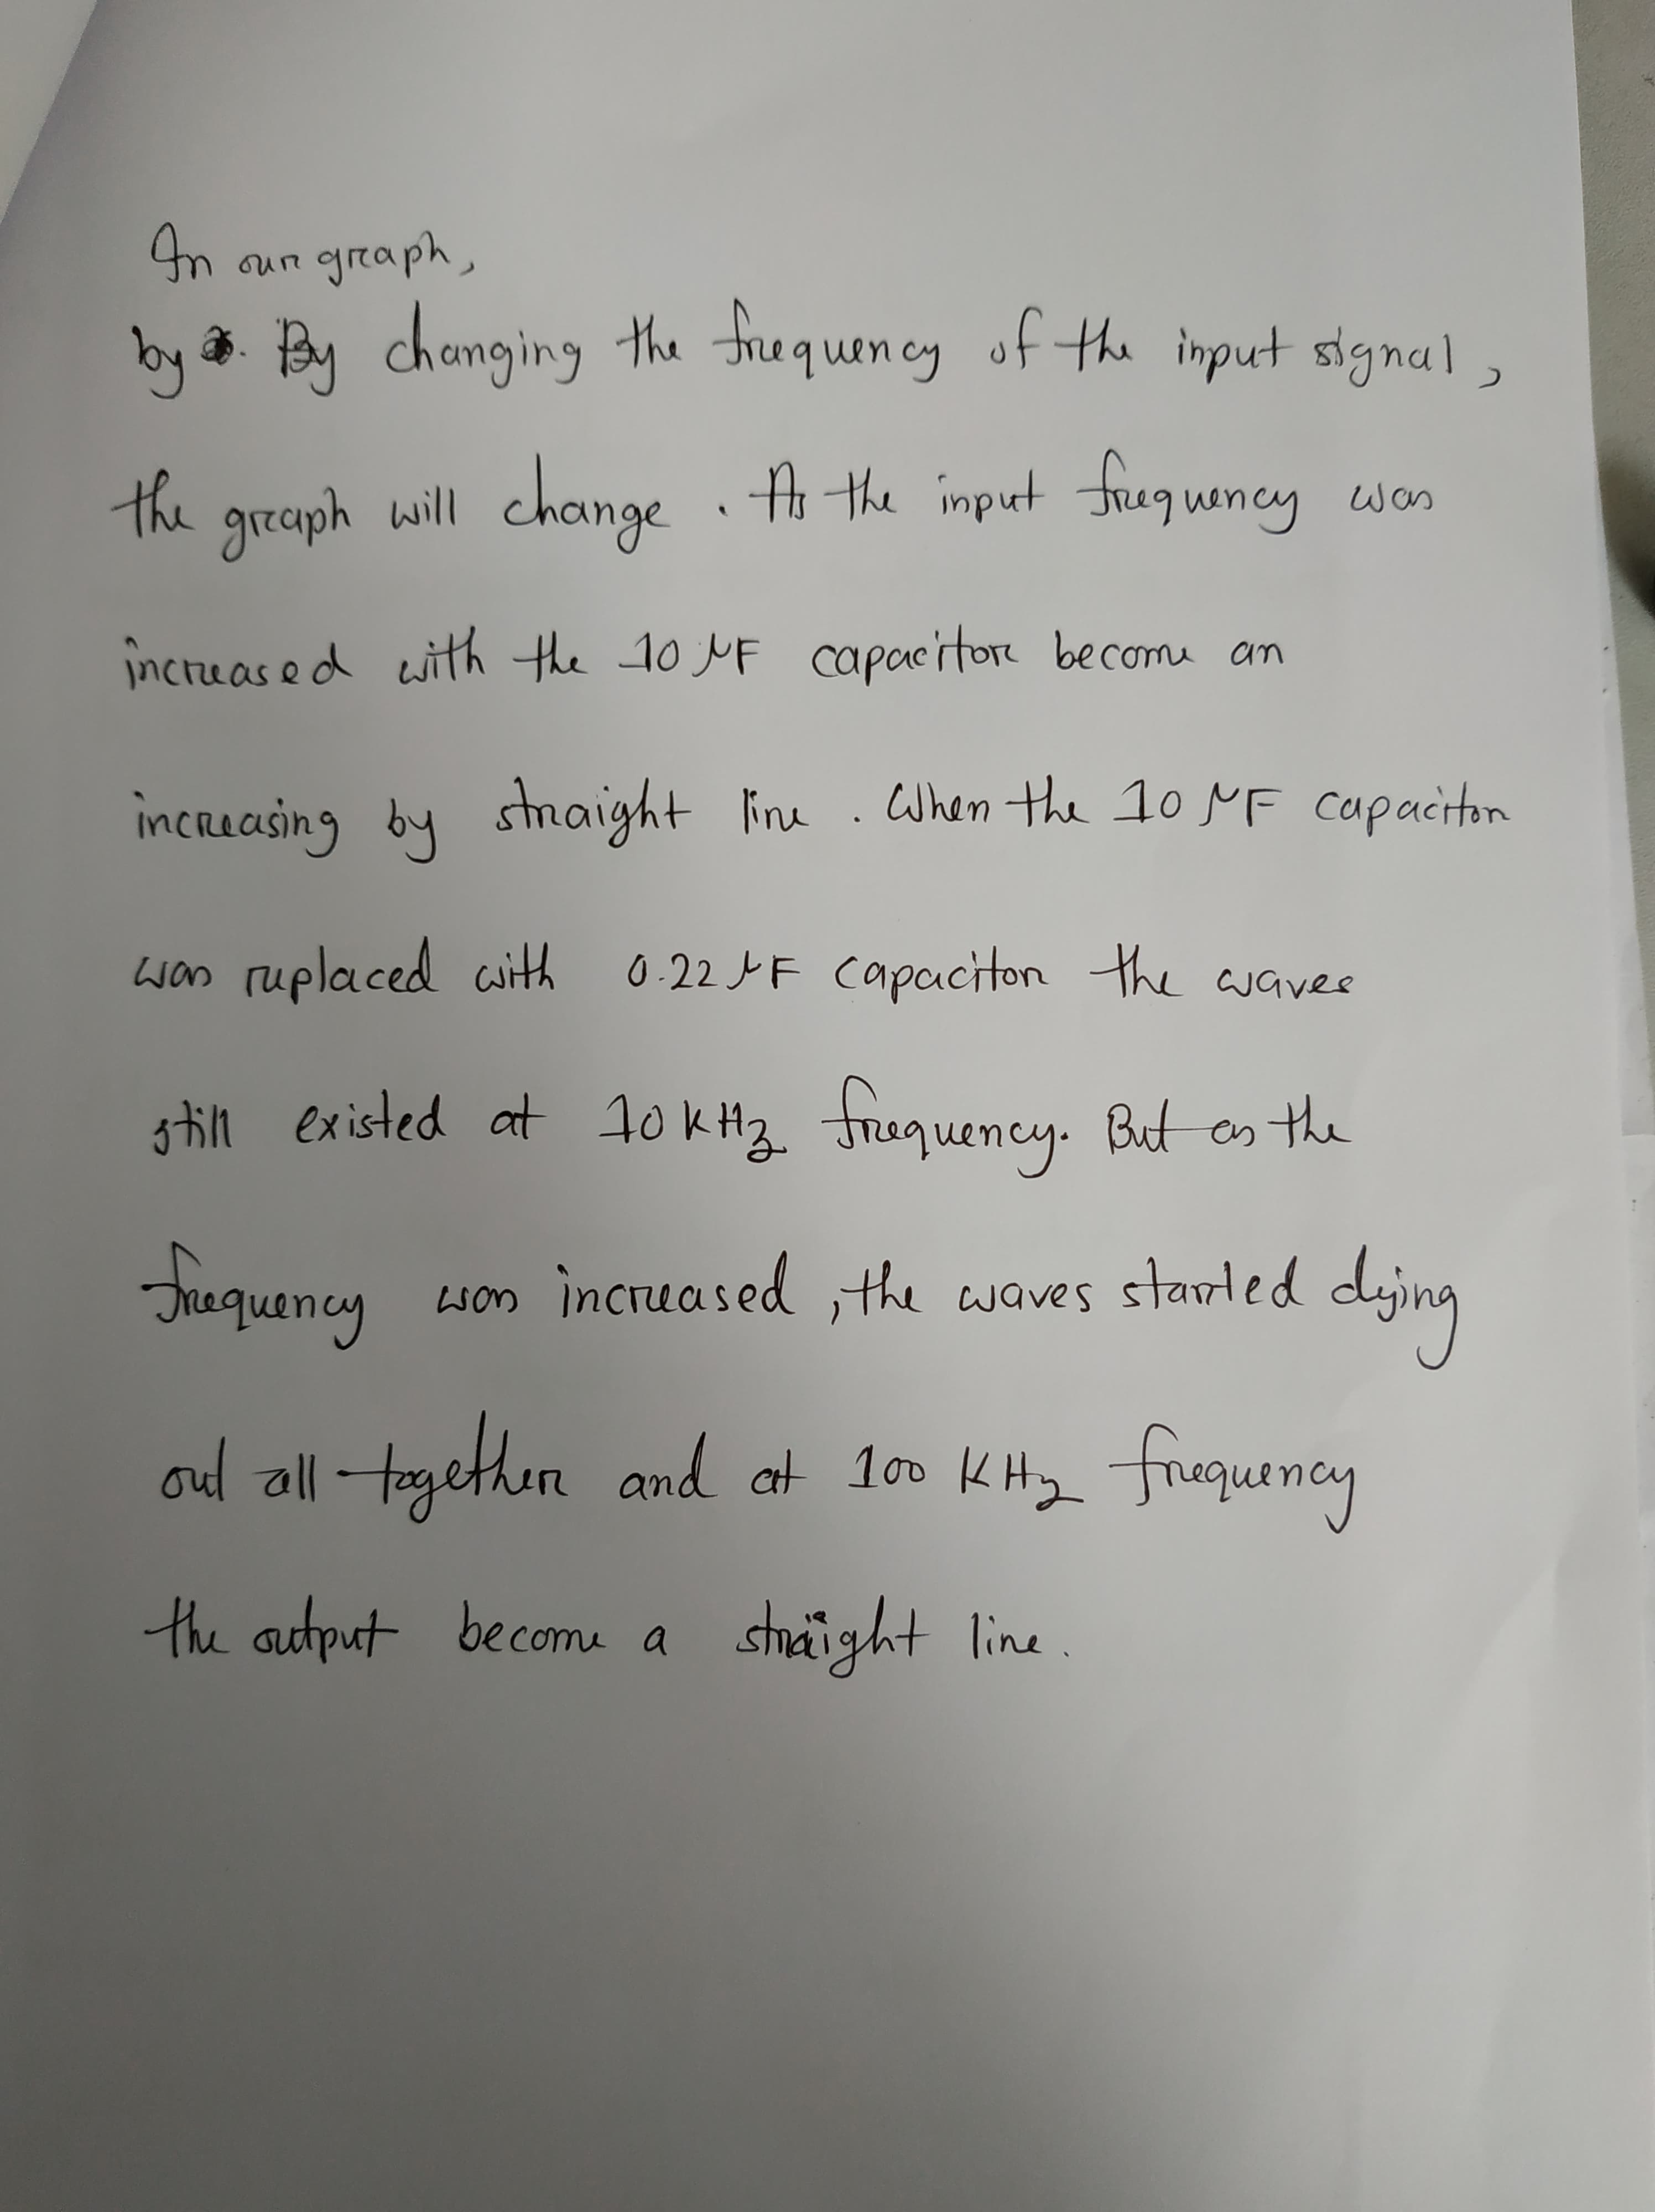 In our graph,
by. By changing the frequency of the input signal,
the graph will change. As the input frequency was
increased with the 10 μF capacitor become an
increasing by straight line. When the 10 μF capacitor
was replaced with 0.22 μF capacitor the waves
still existed at 10 kHz frequency. But as the
frequency was increased, the waves started dying
out all together and at 100 KHz frequency
the output become a straight line.